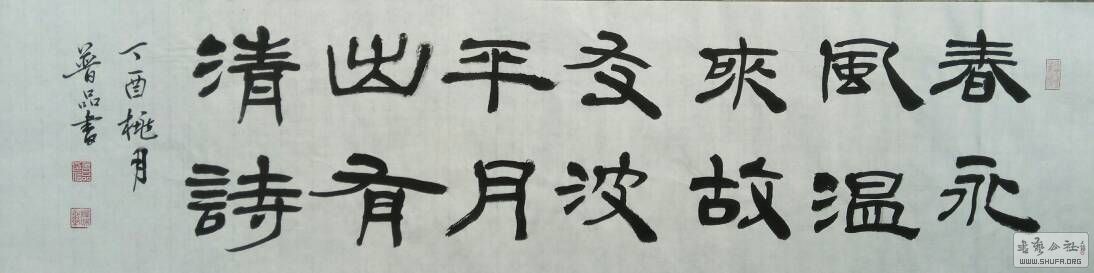 春永
風温
來故
友波
平月
出有
清詩
丁酉桃月
普品書
书艺公社
WWW.SHUFA.ORG